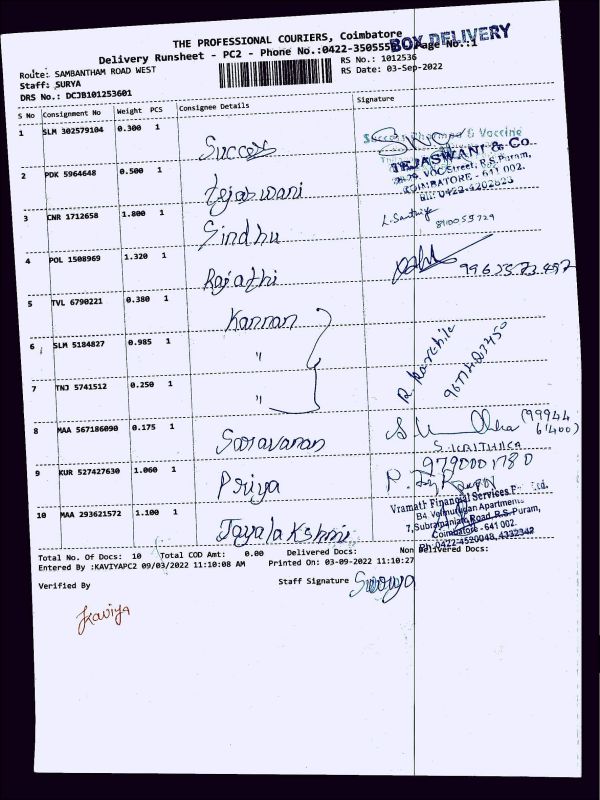 THE PROFESSIONAL COURIERS, Coimbatore
Delivery Runsheet - PC2 - Phone No.:0422-350555 Page No.:1
BOX DELIVERY
Route: SAMBANTHAM ROAD WEST
RS No.: 1012536
Staff: SURYA
RS Date: 03-Sep-2022
DRS No.: DCJB101253601
S No Consignment No Weight PCS Consignee Details Signature
1 SLM 302579104 0.300 1 Success
Success Pharma & Vaccine
2 PDK 5964648 0.500 1 Tejaswani
TEJASWANI & Co.
VOC Street, R.S.Puram,
COIMBATORE - 641 002.
3 CNR 1712658 1.800 1 Sindhu
4 POL 1508969 1.320 1 Rajathi
5 TVL 6790221 0.380 1 Kannan
6 SLM 5184827 0.985 1 "
7 TNJ 5741512 0.250 1 "
8 MAA 567186090 0.175 1 Saravanan
(99944
61400)
9 KUR 527427630 1.060 1 Priya
9790001780
10 MAA 293621572 1.100 1 Jayalakshmi
Vramath Financial Services
B4 Velmurugan Apartments
7,Subramaniam Road, R.S.Puram,
Coimbatore - 641 002.
Ph:0422-4520048, 4332342
Total No. Of Docs: 10 Total COD Amt: 0.00 Delivered Docs: Non Delivered Docs:
Entered By :KAVIYAPC2 09/03/2022 11:10:08 AM Printed On: 03-09-2022 11:10:27
Verified By Staff Signature Surya
Kaviya